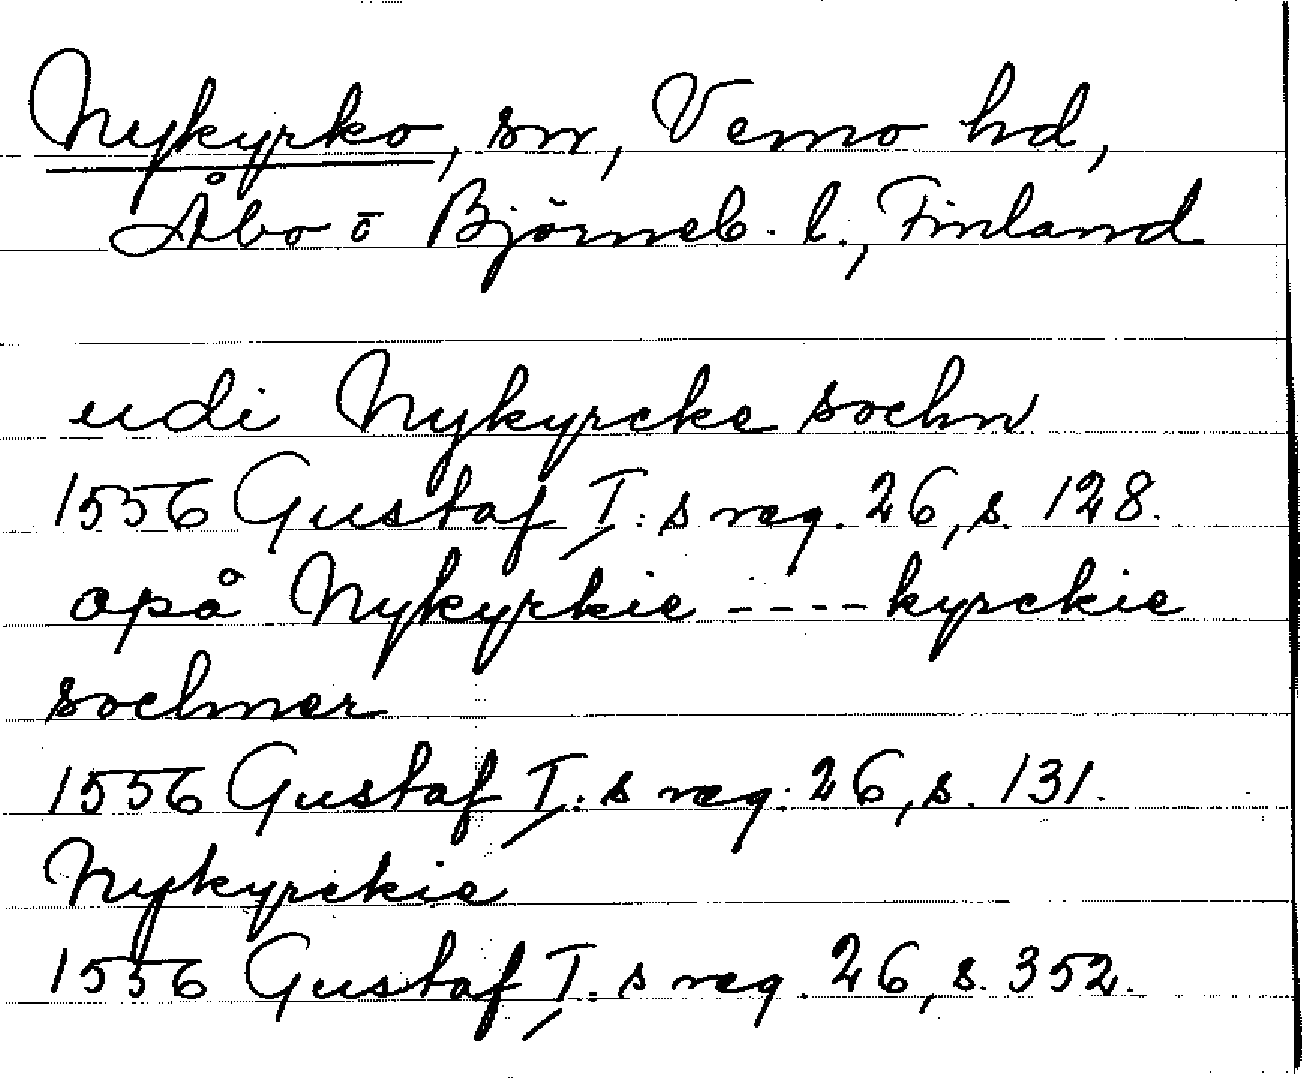 Nykyrko, sn, Vemo hd,
Åbo o Björneb. l., Finland
udi Nykyrcke sochn
1556 Gustaf I:s reg. 26, s. 128.
opå Nykyrkie ---- kyrckie
sochner
1556 Gustaf I:s reg. 26, s. 131.
Nykyrckie
1556 Gustaf I:s reg. 26, s. 352.